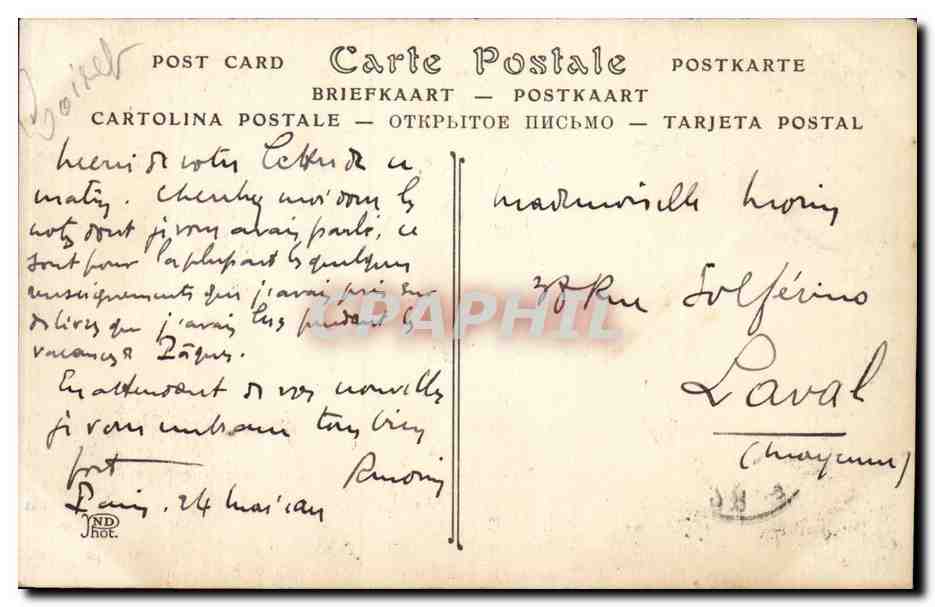 POST CARD Carte Postale POSTKARTE
BRIEFKAART — POSTKAART
CARTOLINA POSTALE — ОТКРЫТОЕ ПИСЬМО — TARJETA POSTAL
Merci de votre lettre de ce
matin. Cherchez moi donc les
notes dont je vous avais parlé, ce
sont pour la plupart les quelques
renseignements que j'avais pris sur
des livres que j'avais lus pendant les
vacances de Pâques.
En attendant de vos nouvelles
je vous embrasse tous bien
fort
Paris, 24 Mai
Mademoiselle Morin
Rue Solférino
Laval
(Mayenne)
ND
Phot.
CPAPHIL